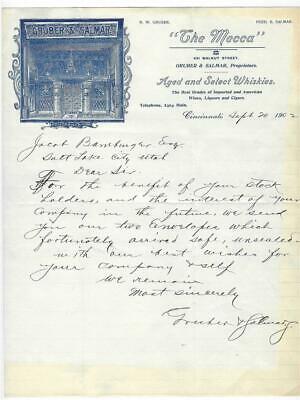 GRUBER & SALMAR
R. W. GRUBER.
FRED. S. SALMAR.
"The Mecca"
WALNUT STREET
GRUBER & SALMAR, Proprietors.
Aged and Select Whiskies.
The Best Grades of Imported and American
Wines, Liquors and Cigars.
Telephone, 2304 Main.
Cincinnati, Sept 20 1902
Jacob Bamburger Esq.
Salt Lake City Utah
Dear Sir
For the benefit of your stock
holders, and the interest of your
Company in the future, we send
you our two Envelopes which
fortunately arrived safe, unsealed
with our best wishes for
your company & self
We remain
Most sincerely
Gruber & Salmar